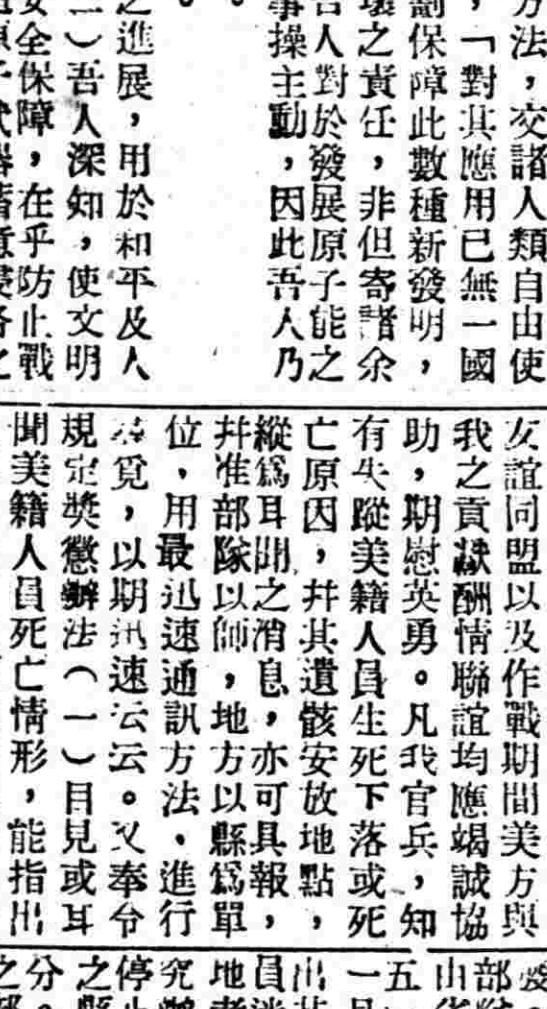 方法，交諸人類自由使
，「對其應用已無一國
劃保障此數種新發明，
壞之責任，非但寄諸余
吾人對於發展原子能之
事操主動，因此吾人乃
。
之進展，用於和平及人
二）吾人深知，使文明
安全保障，在乎防止戰
友誼同盟以及作戰期間美方與
我之貢獻酬情聯誼均應竭誠協
助，期慰英勇。凡我官兵，知
有失蹤美籍人員生死下落或死
亡原因，幷其遺骸安放地點，
縱爲耳聞之消息，亦可具報，
幷准部隊以師，地方以縣爲單
位，用最迅速通訊方法，進行
尋覓，以期迅速云云。又奉令
規定獎懲辦法（一）目見或耳
聞美籍人員死亡情形，能指出
部
山
五
一
出
員
地
究
停
之
分
之